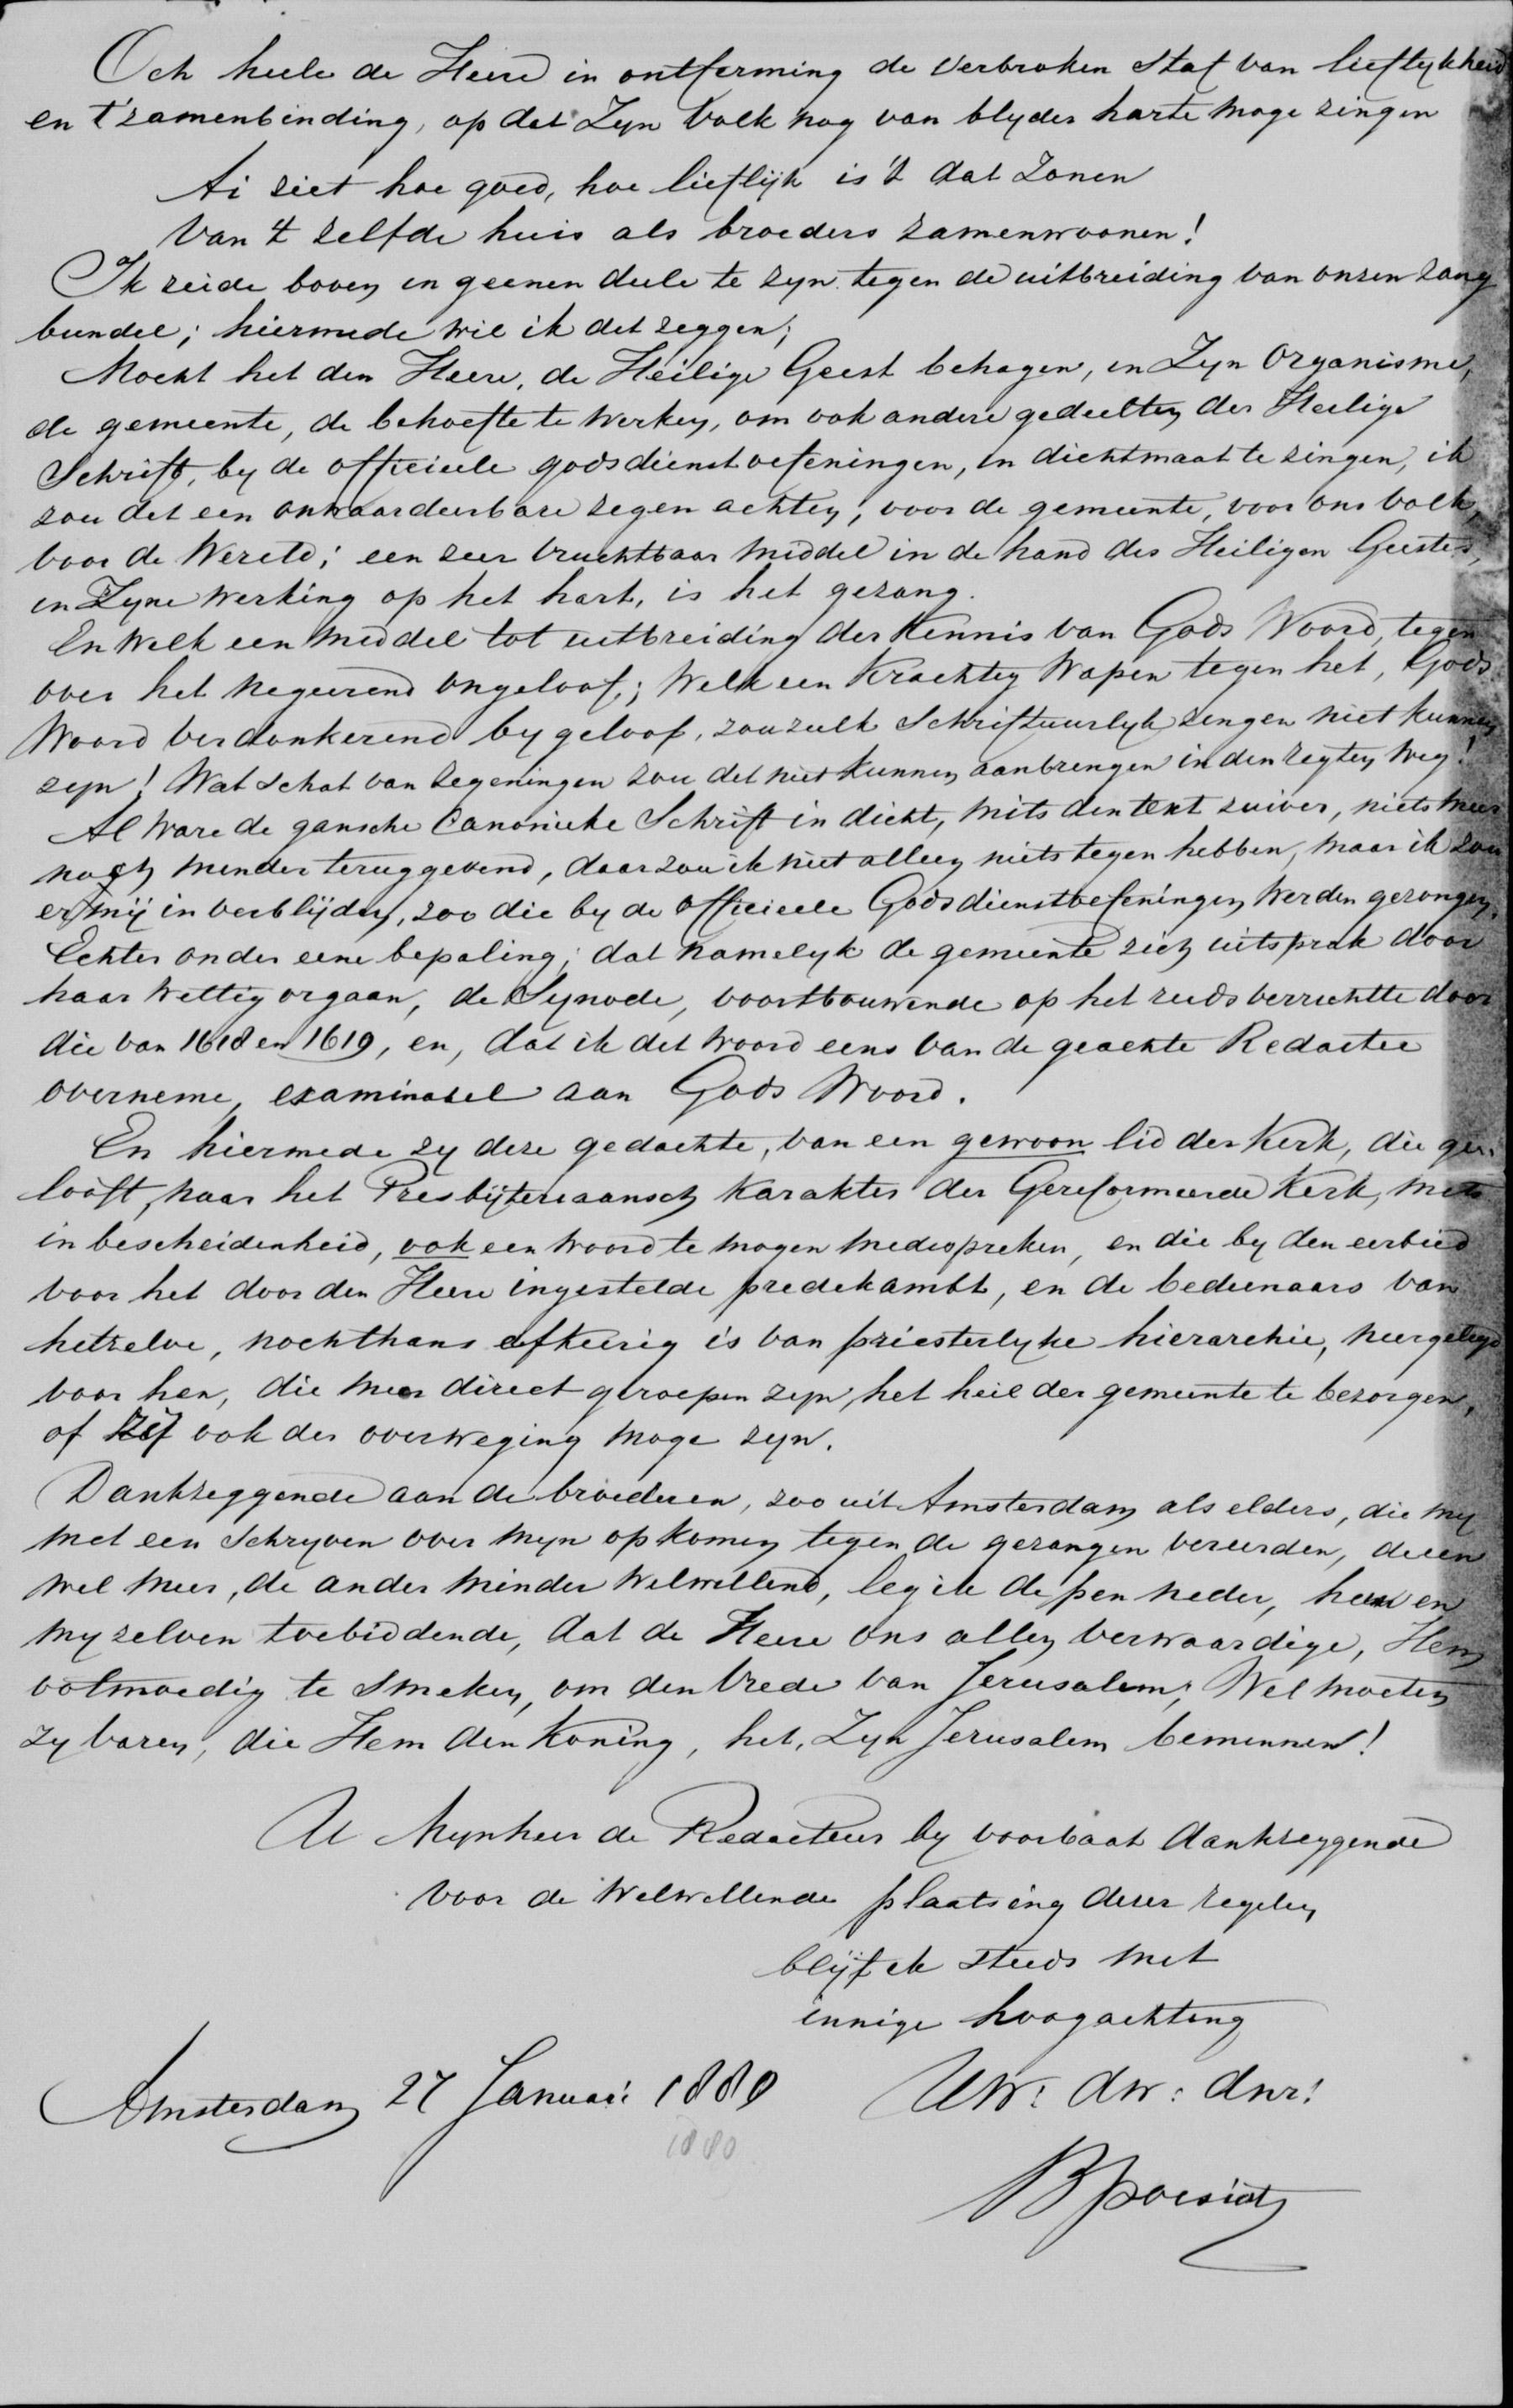 Och heele de Heere in ontferming de verbroken Staf van lieflykheid
en t'zamenbinding, op dat Zyn Volk nog van blyder harte moge zingen
Ai ziet hoe goed, hoe lieflijk is 't dat Zonen
Van 't zelfde huis als broeders zamenwoonen!
Ik zeide boven in geenen deele te zyn tegen de uitbreiding van onzen zang
bundel; hiermede wil ik dit zeggen;
Mocht het den Heere, de Heilige Geest behagen, in Zyn Organisme,
de gemeente, de behoefte te werken, om ook andere gedeelten der Heilige
Schrift, by de officieele godsdienstoefeningen, in dichtmaat te zingen, ik
zou dit een onwaardeerbare zegen achten, voor de gemeente, voor ons volk,
voor de Wereld; een zeer vruchtbaar middel in de hand des Heiligen Geestes,
in Zyne werking op het hart, is het gezang.
En welk een middel tot uitbreiding der Kennis van Gods Woord, tegen
over het negeerend ongeloof; Welk een Krachtig Wapen tegen het, Gods
Woord verdonkerend bygeloof, zou zulk Schriftuurlyk zingen niet kunnen
zyn! Wat schat van zegeningen zou dit niet kunnen aanbrengen in den regten weg!
Al ware de gansche Canonieke Schrift in dicht, mits den text zuiver, niets meer
noch minder teruggevend, daar zou ik niet alleen niets tegen hebben, maar ik zou
er mij in verblijden, zoo die by de officieele Godsdienstoefeningen werden gezongen.
Echter onder eene bepaling; dat namelyk de gemeente zich uitsprak door
haar Wettig orgaan, de Synode, voortbouwende op het reeds verrichtte door
die van 1618 en 1619, en, dat ik dit woord eens van de geachte Redactie
overneme, examinabel aan Gods Woord.
En hiermede zy deze gedachte, van een gewoon lid der Kerk, die ge-
looft, naar het Presbijteriaansch Karakter der Gereformeerde Kerk, mits
in bescheidenheid, ook een woord te mogen medespreken, en die by den eerbied
voor het door den Heere ingestelde predikambt, en de bedienaars van
hetzelve, nochthans afkeerig is van priesterlyke hierarchie, neergelegd
voor hen, die meer direct geroepen zyn, het heil der gemeente te bezorgen,
of zij ook der overweging moge zyn.
Dankzeggende aan de broederen, zoo uit Amsterdam als elders, die my
met een Schryven over myn opkomen tegen de gezangen vereerden, de een
wel meer, de ander minder Welwillend, leg ik de pen neder, hen en
my zelven toebiddende, dat de Heere ons allen verwaardige, Hem
ootmoedig te Smeken, om den Vrede van Jerusalem; Wel moeten
zy varen, die Hem den Koning, het, Zyn Jerusalem beminnen!
U Mynheer de Redacteur by voorbaat dankzeggende
Voor de Welwillende plaatsing dezer regelen
blijf ik steeds met
innige hoogachting
Amsterdam 27 Januari 1880 UW: dw: dnr:
1880